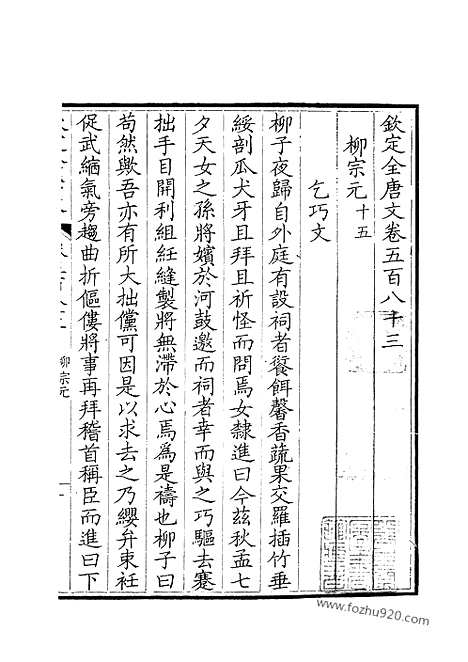 欽定全唐文卷五百八十三
柳宗元十五
乞巧文
柳子夜歸自外庭有設祠者餐餌馨香蔬果交羅插竹垂
綏剖瓜犬牙且拜且祈怪而問焉女隸進曰今茲秋孟七
夕天女之孫將嬪於河鼓邀而祠者幸而與之巧驅去蹇
拙手目開利組紝縫製將無滯於心焉為是禱也柳子曰
苟然歟吾亦有所大拙儻可因是以求去之乃纓弁束衽
促武縮氣旁趨曲折傴僂將事再拜稽首稱臣而進曰下
柳宗元
www.fozhu920.com